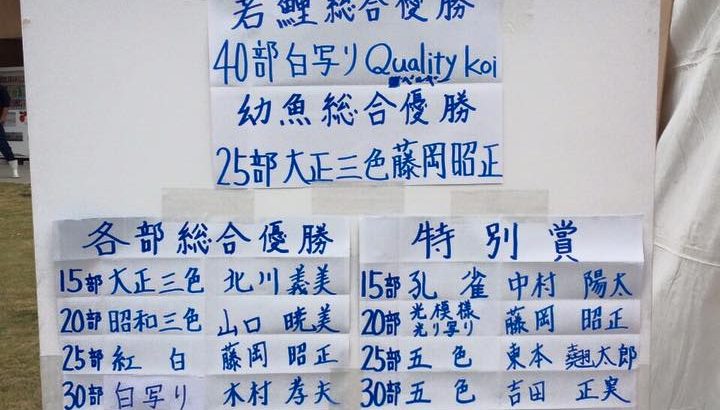 若鯉総合優勝
40部 白写り Quality koi
幼魚総合優勝
25部 大正三色 藤岡昭正
各部総合優勝
15部 大正三色 北川義美
20部 昭和三色 山口暁美
25部 紅白 藤岡昭正
30部 白写り 木村孝夫
特別賞
15部 孔雀 中村陽太
20部 光模様 光り写り 藤岡昭正
25部 五色 東本 太郎
30部 五色 吉田正実